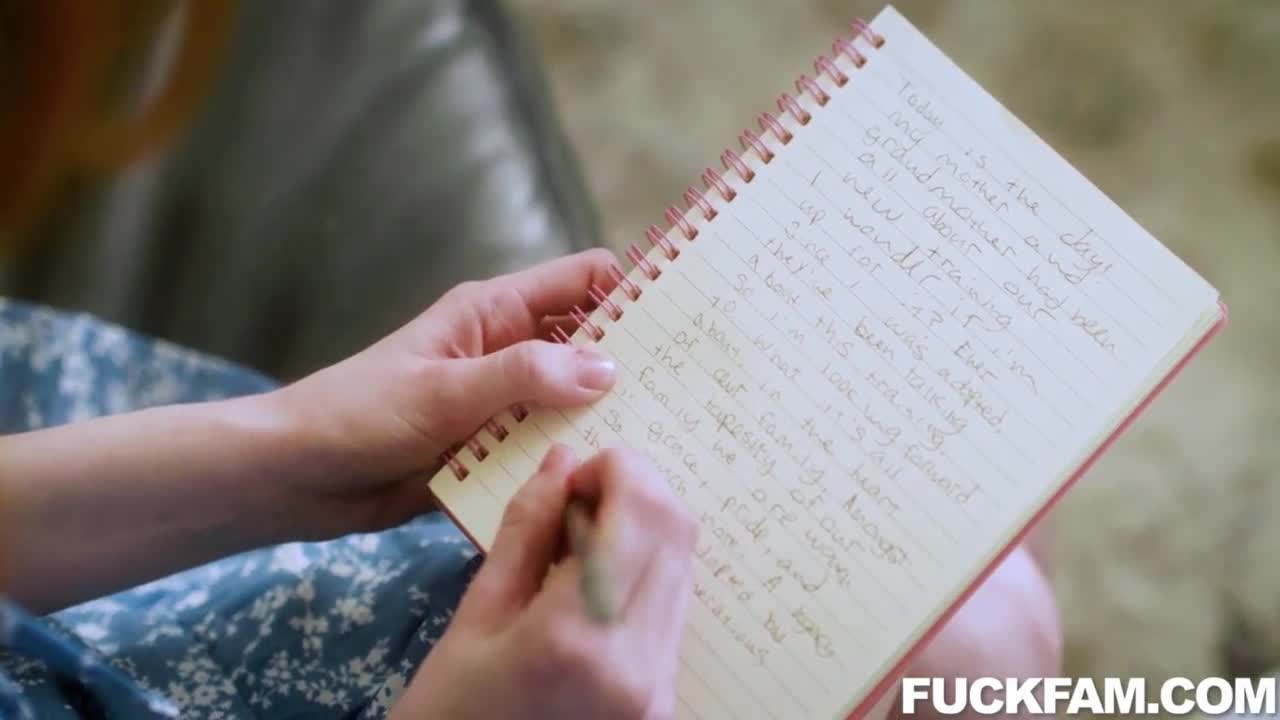 Today is the day!
My mother and
grandmother had been
all about our
new training
I wonder if I'm
up for it? Ever
since I was adopted
they've been talking
about this training.
So I'm looking forward
to what it's all
about in the heart
of our family. Amongst
the of our
family we are wave
grace, pride, and
So A legacy
by
FUCKFAM.COM